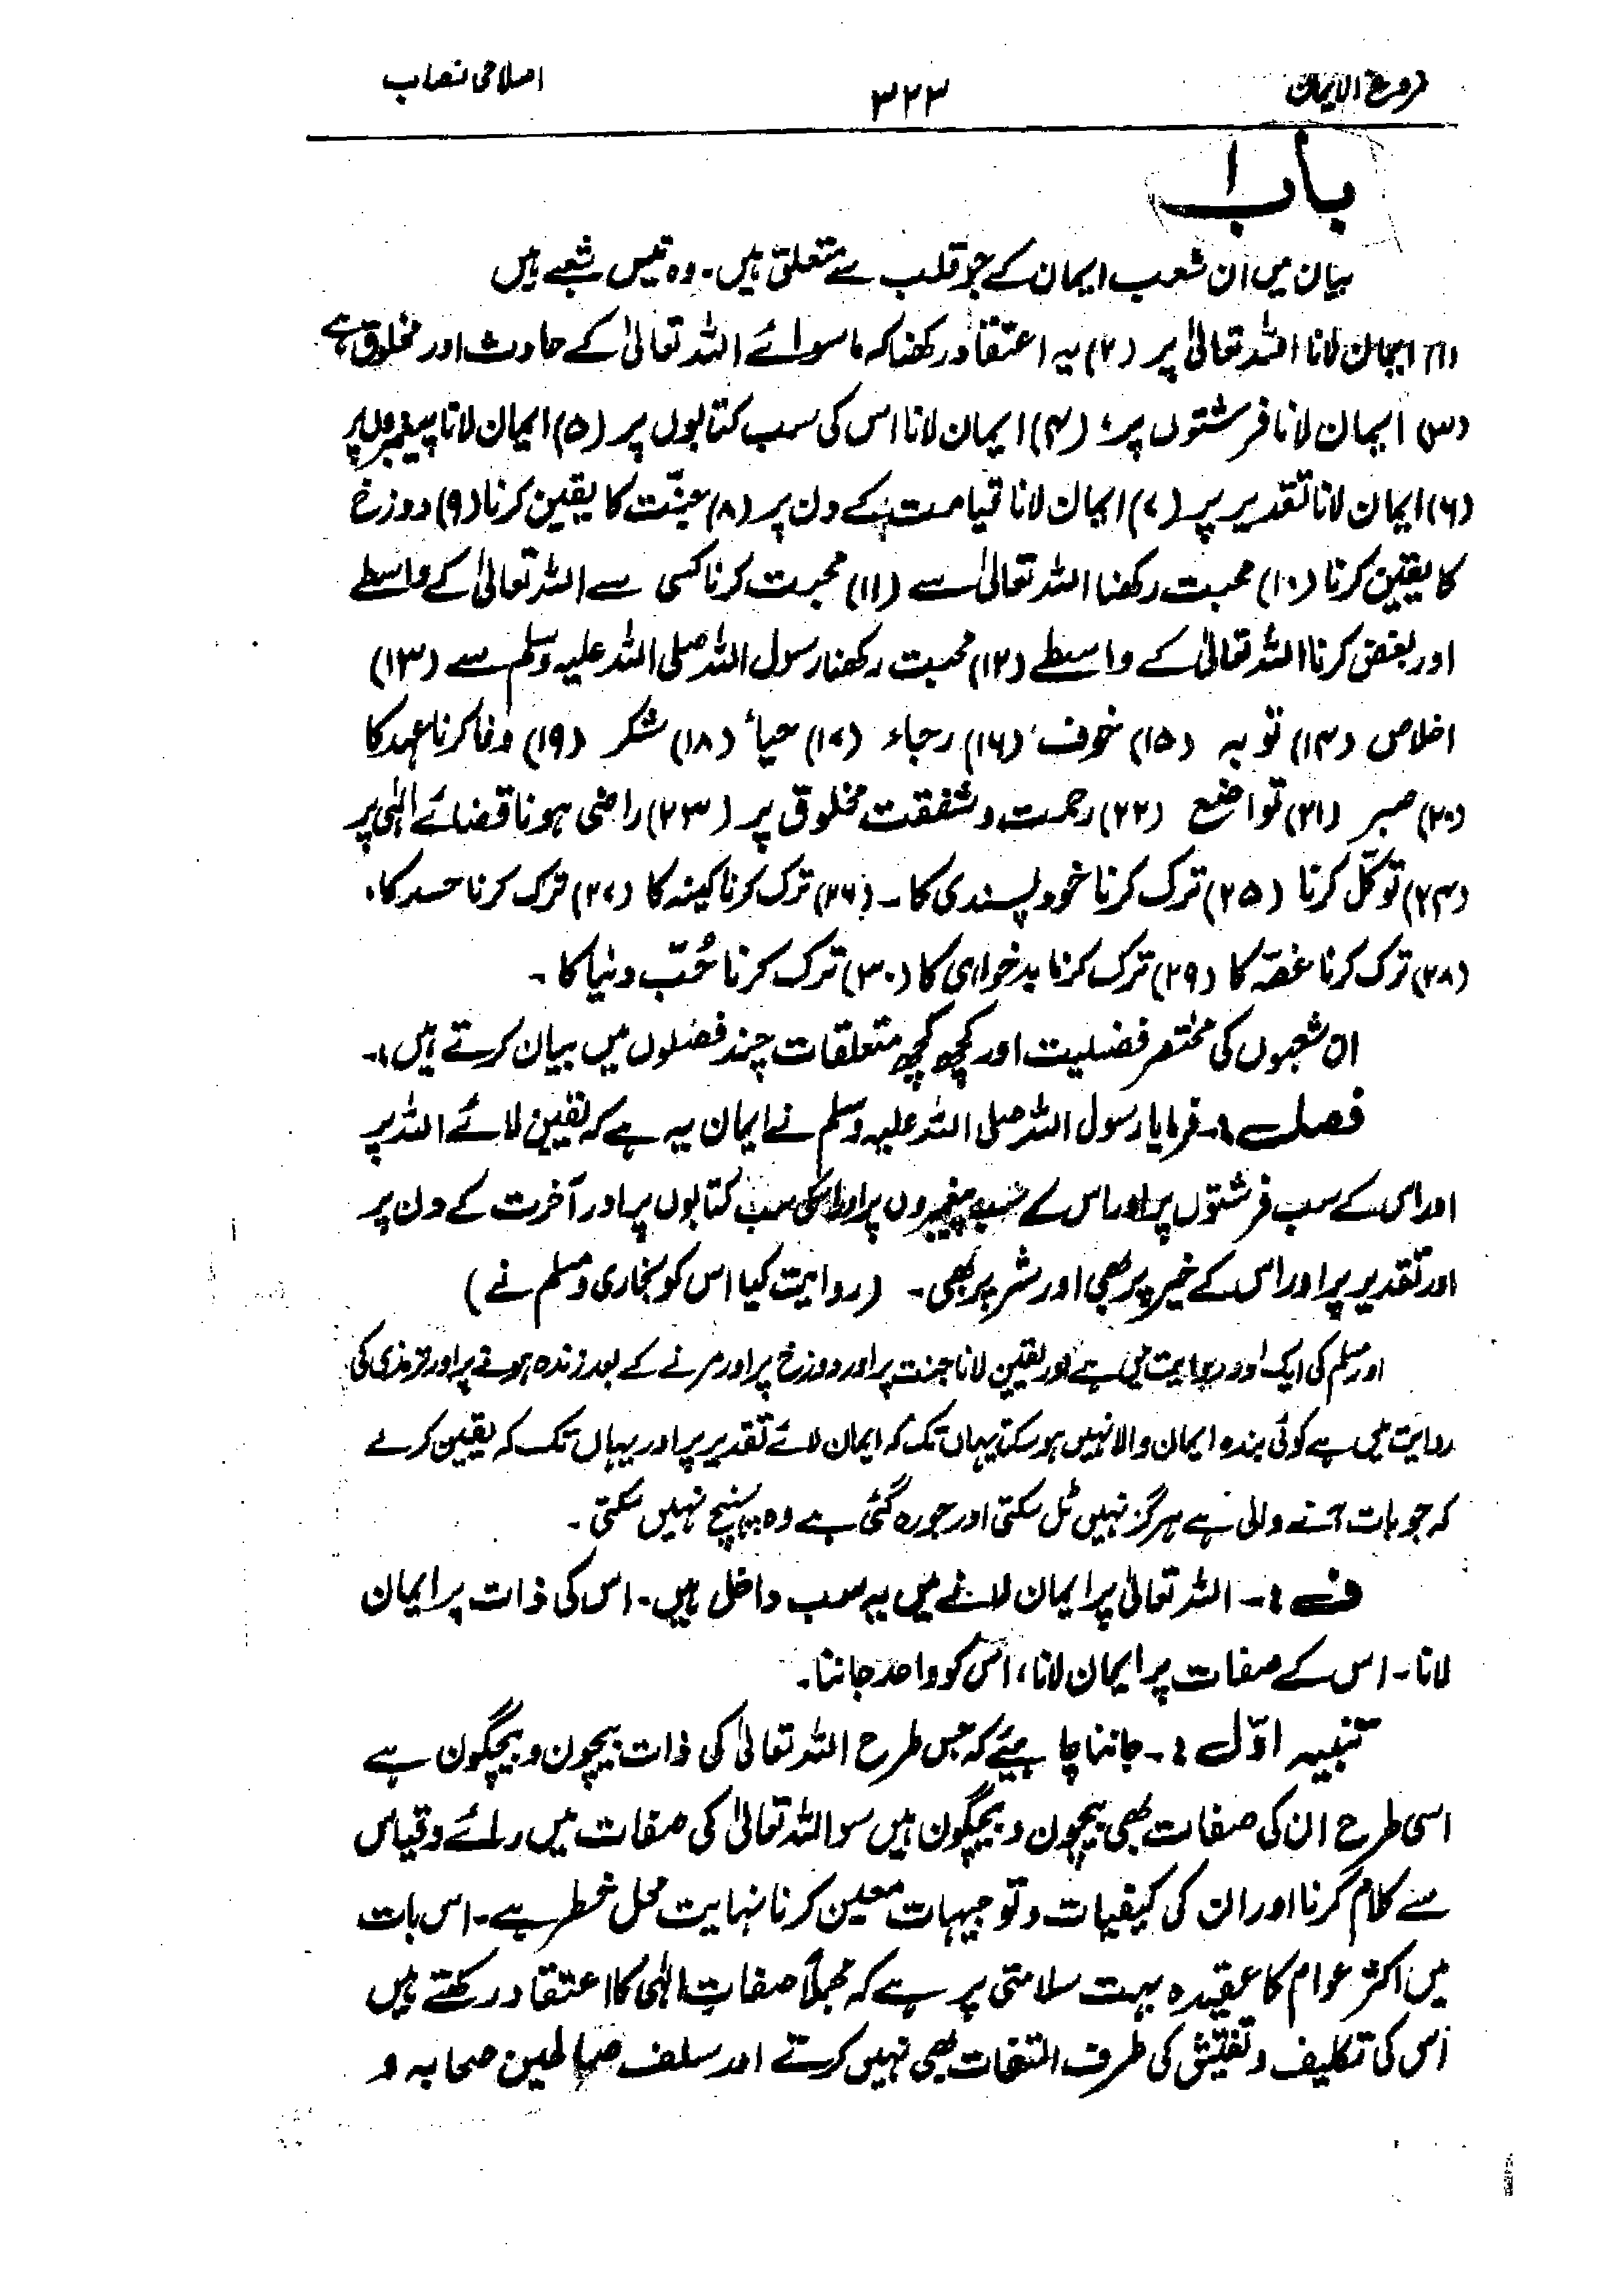 فروع الایمان ۳۲۳ اصلاحی نصاب
باب ا
بیان میں ان شعب ایمان کے جو قلب سے متعلق ہیں۔ وہ تیس شعبے ہیں
(۱) ایمان لانا اللہ تعالیٰ پر (۲) یہ اعتقاد رکھنا کہ ماسوائے اللہ تعالیٰ کے حادث اور مخلوق ہے
(۳) ایمان لانا فرشتوں پر، (۴) ایمان لانا اس کی سب کتابوں پر (۵) ایمان لانا پیغمبروں پر
(۶) ایمان لانا تقدیر پر (۷) ایمان لانا قیامت کے دن پر (۸) جنّت کا یقین کرنا (۹) دوزخ
کا یقین کرنا (۱۰) محبت رکھنا اللہ تعالیٰ سے (۱۱) محبت کرنا کسی سے اللہ تعالیٰ کے واسطے
اور بغض کرنا اللہ تعالیٰ کے واسطے (۱۲) محبت رکھنا رسول اللہ صلی اللہ علیہ وسلم سے (۱۳)
اخلاص (۱۴) توبہ (۱۵) خوف (۱۶) رجاء (۱۷) حیاء (۱۸) شکر (۱۹) وفا کرنا عہد کا
(۲۰) صبر (۲۱) تواضع (۲۲) رحمت و شفقت مخلوق پر (۲۳) راضی ہونا قضائے الٰہی پر
(۲۴) توکّل کرنا (۲۵) ترک کرنا خود پسندی کا۔ (۲۶) ترک کرنا کینہ کا (۲۷) ترک کرنا حسد کا،
(۲۸) ترک کرنا غصّہ کا (۲۹) ترک کرنا بدخواہی کا (۳۰) ترک کرنا حُبّ دنیا کا۔
ان شعبوں کی مختصر فضیلت اور کچھ کچھ متعلقات چند فصلوں میں بیان کرتے ہیں:۔
فصل :۔ فرمایا رسول اللہ صلی اللہ علیہ وسلم نے ایمان یہ ہے کہ یقین لائے اللہ پر
اور اس کے سب فرشتوں پر اور اس کے سب پیغمبروں پر اور اس کی سب کتابوں پر اور آخرت کے دن پر
اور تقدیر پر اور اس کے خیر پر بھی اور شر پر بھی۔ (روایت کیا اس کو بخاری و مسلم نے)
اور مسلم کی ایک اور روایت میں ہے اور یقین لانا جنت پر اور دوزخ پر اور مرنے کے بعد زندہ ہونے پر اور ترمذی کی
روایت میں ہے کوئی بندہ ایمان والا نہیں ہو سکتا یہاں تک کہ ایمان لائے تقدیر پر اور یہاں تک کہ یقین کر لے
کہ جو بات آنے والی ہے ہرگز نہیں ٹل سکتی اور جو رہ گئی ہے وہ پہنچ نہیں سکتی۔
ف :۔ اللہ تعالیٰ پر ایمان لانے میں یہ سب داخل ہیں۔ اس کی ذات پر ایمان
لانا۔ اس کے صفات پر ایمان لانا، اس کو واحد جاننا۔
تنبیہ اوّل :۔ جاننا چاہیئے کہ جس طرح اللہ تعالیٰ کی ذات بیچون و بیچگون ہے
اسی طرح ان کی صفات بھی بیچون و بیچگون ہیں سو اللہ تعالیٰ کی صفات میں رائے و قیاس
سے کلام کرنا اور ان کی کیفیات و توجیہات معین کرنا نہایت محل خطر ہے۔ اس بات
میں اکثر عوام کا عقیدہ بہت سلامتی پر ہے کہ مجملاً صفاتِ الٰہی کا اعتقاد رکھتے ہیں
اس کی تکلیف و تفتیش کی طرف التفات بھی نہیں کرتے اور سلف صالحین صحابہ و